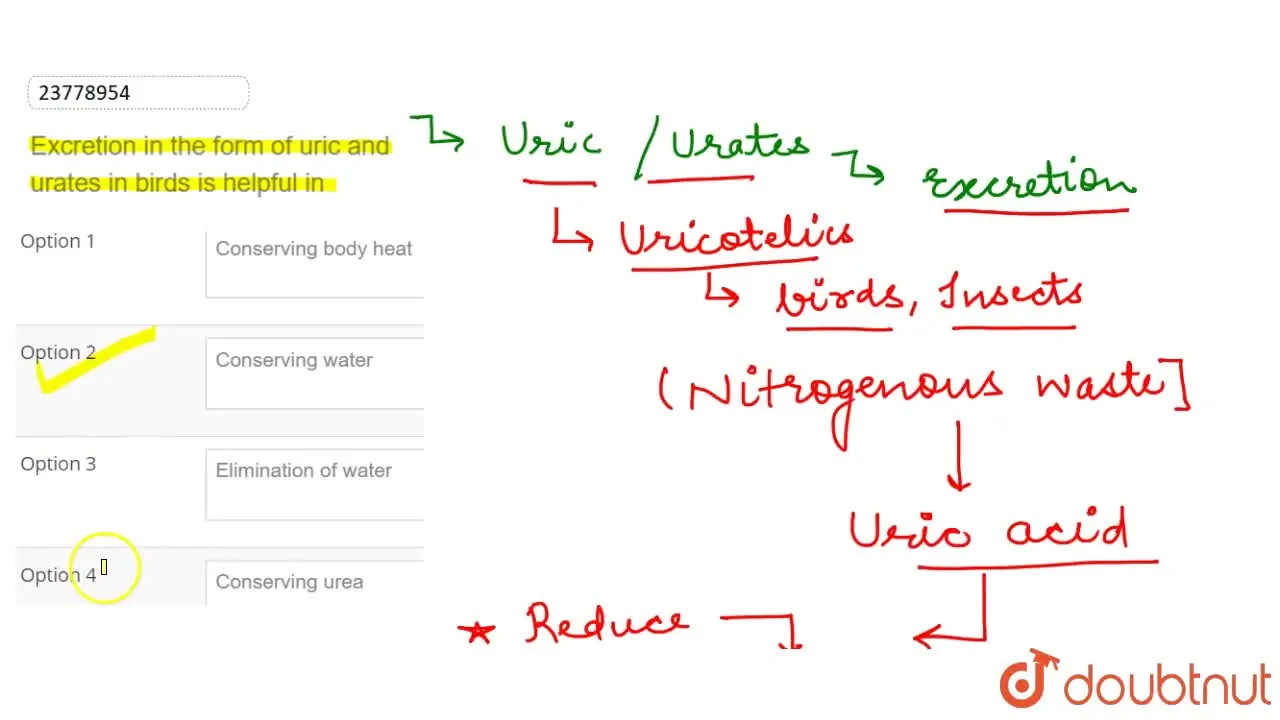 23778954
Excretion in the form of uric and
urates in birds is helpful in
Option 1
Conserving body heat
Option 2
Conserving water
Option 3
Elimination of water
Option 4
Conserving urea
Uric / Urates
excretion
Uricotelics
birds, Insects
(Nitrogenous waste]
Uric acid
★ Reduce
doubtnut